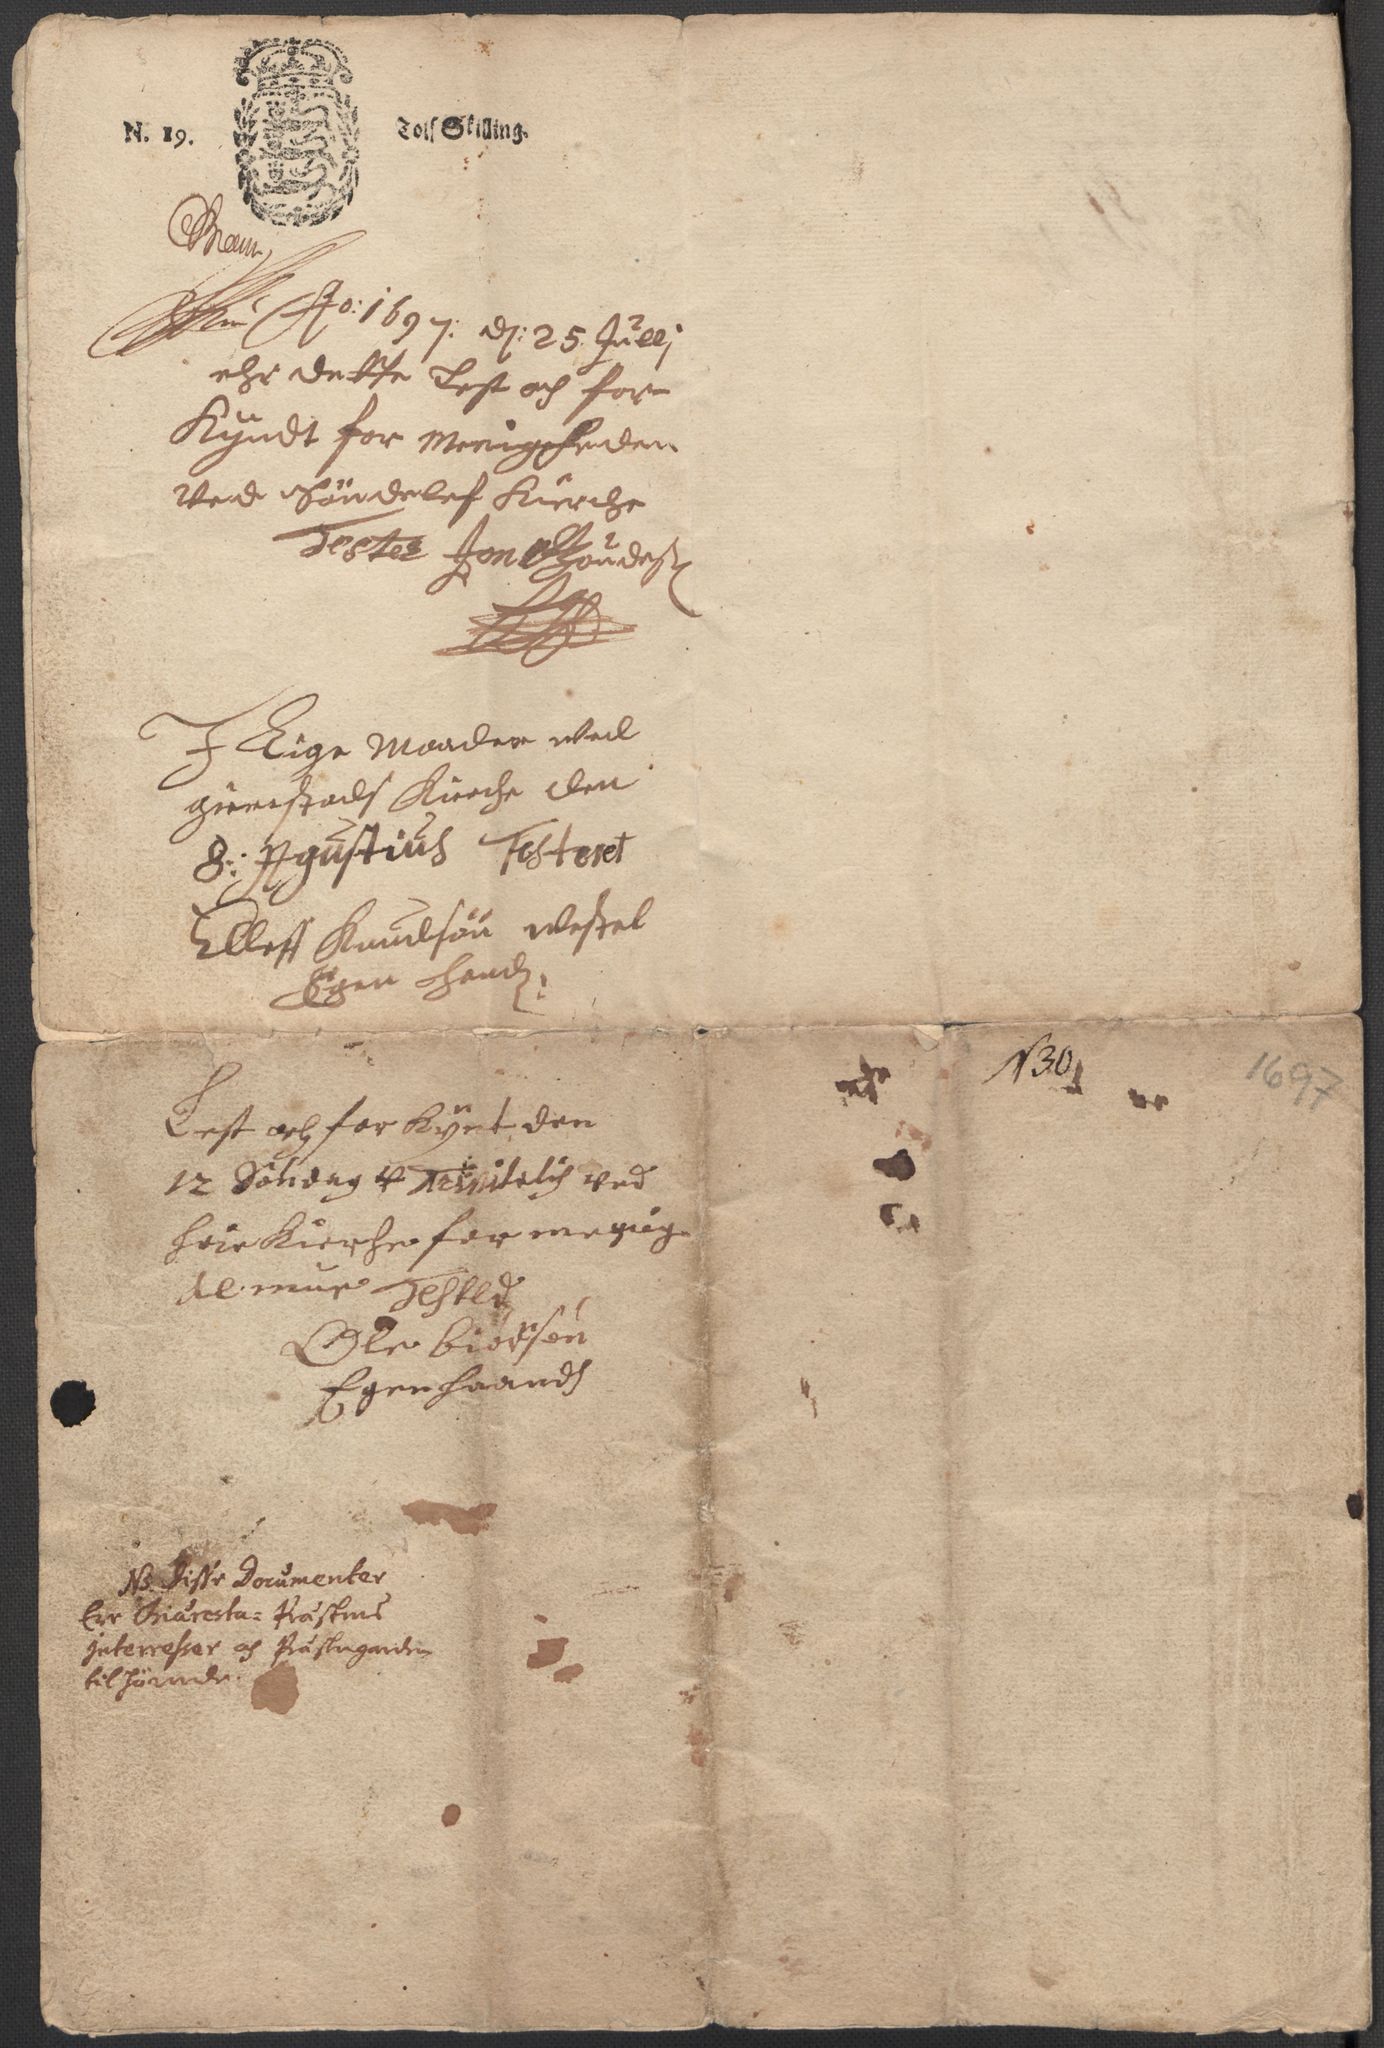 N. 19. Tolf Skilling.
Ao: 1697: d: 25 Julij
ehr dette Lest och for-
Kyndt for Menigheden
Ved Söndelef Kierche
Tester Jon
I Lige Maader wed
gierrestads Kirche den
8: Agustius Testeret
Elleff Knudsøn westel
Egen Hand:
Lest och for Kynt den
12 Söndag Trinitatis ved
Kierche for menig-
Testerer
Ole biörsön
Egen haand
N30
1697
NB. Disse Documenter
Ere Præstens
Interesser och Præstegarden
til hörende.